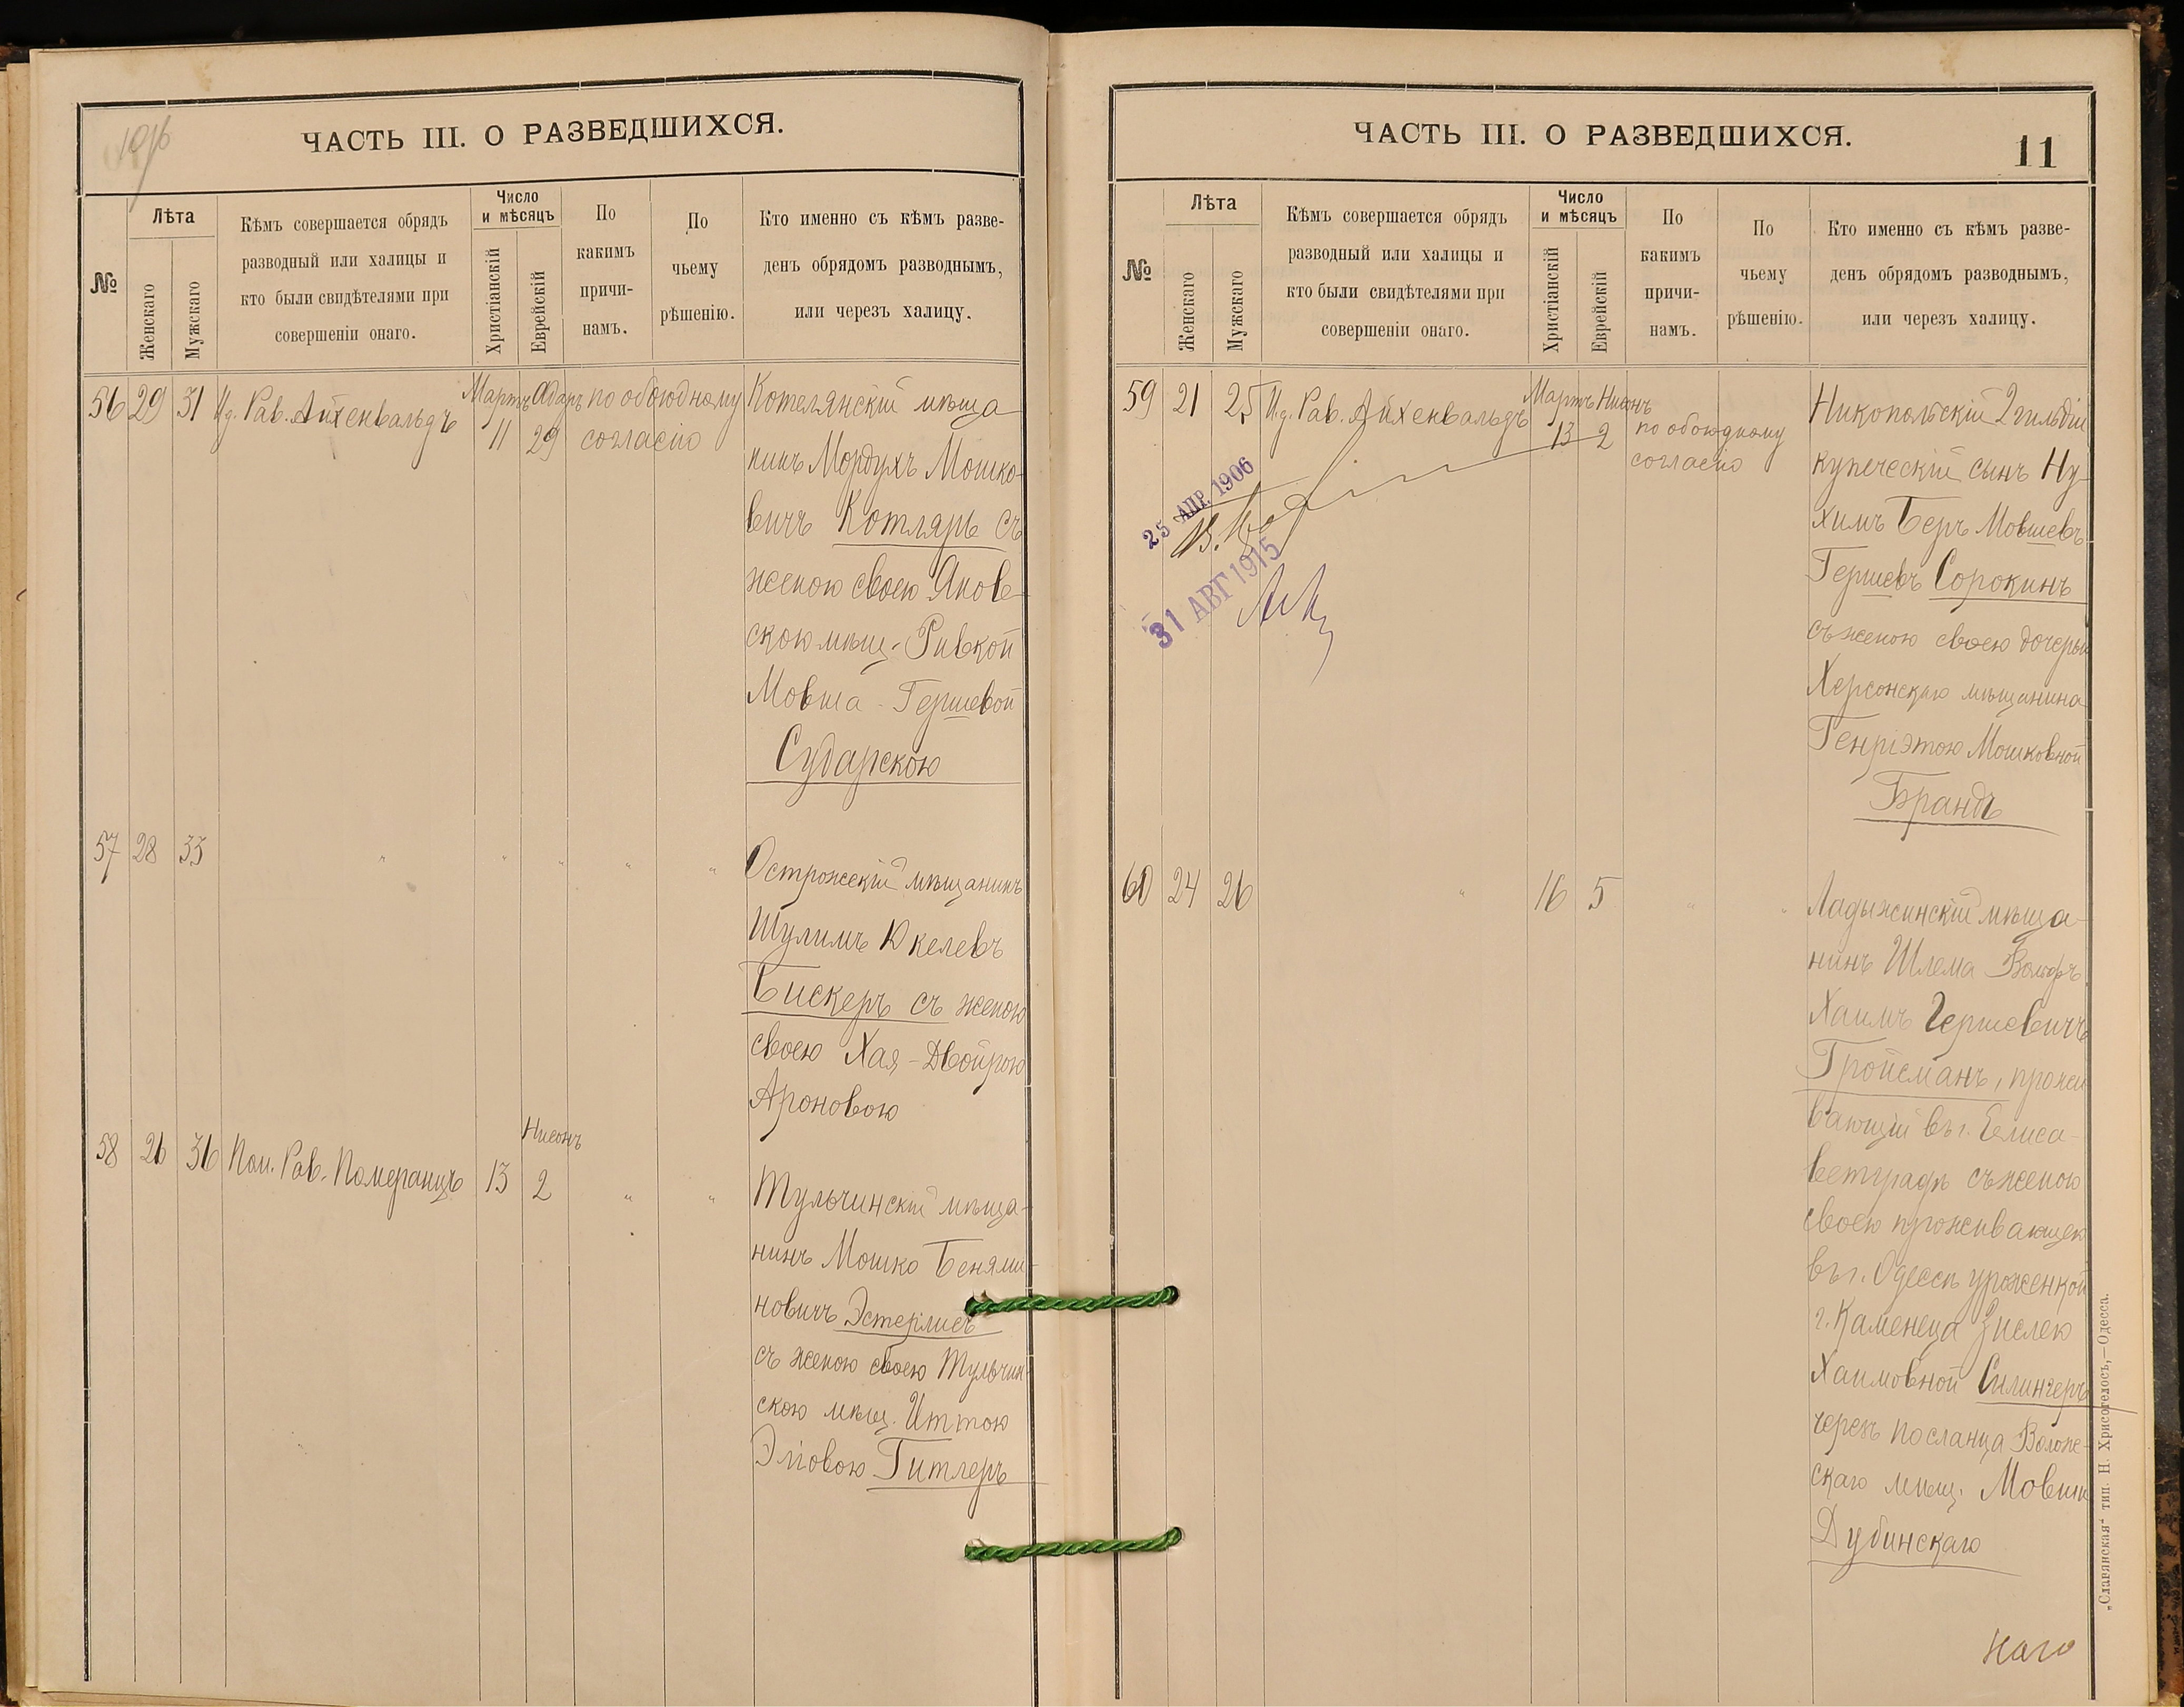 ЧАСТЬ III. О РАЗВЕДШИХСЯ.
№
Лѣта
Женскаго
Мужскаго
Кѣмъ совершается обрядъ
разводный или халицы и
кто были свидѣтелями при
совершеніи онаго.
Число
и мѣсяцъ
Христіанскій
Еврейскій
По
какимъ
причи-
намъ.
По
чьему
рѣшенію.
Кто именно съ кѣмъ разве-
денъ обрядомъ разводнымъ,
или черезъ халицу.
56 29 31 И. д. Рав. Айхенвальдъ
Мартъ Адаръ
11 29
по обоюдному
согласію
Котелянскій мѣща
нинъ Мордухъ Мошко-
вичъ Котляръ съ
женою своею Янов
скою мѣщ. Ривкой
Мовша - Гершевой
Сударскою
57 28 33 " " " " "
Острожскій мѣщанинъ
Шулимъ Юкелевъ
Бискеръ съ женою
своею Хая - Двойрою
Ароновою
58 26 36 Пом. Рав. Померанцъ
Нисонъ
13 2 " "
Тульчинскій мѣща-
нинъ Мошко Беньями-
новичъ Эстерлисъ
съ женою своею Тульчин-
скою мѣщ. Иттою
Эліовою Гитлеръ
ЧАСТЬ III. О РАЗВЕДШИХСЯ.
11
№
Лѣта
Женскаго
Мужскаго
Кѣмъ совершается обрядъ
разводный или халицы и
кто были свидѣтелями при
совершеніи онаго.
Число
и мѣсяцъ
Христіанскій
Еврейскій
По
какимъ
причи-
намъ.
По
чьему
рѣшенію.
Кто именно съ кѣмъ разве-
денъ обрядомъ разводнымъ,
или черезъ халицу.
59 21 25 И. д. Рав. Айхенвальдъ
Мартъ Нисонъ
13 2
по обоюдному
согласію
25 АПР. 1906
31 АВГ 1915
Никопольскій 2 гильдіи
купеческій сынъ Ну-
химъ Беръ Мовшевъ
Гершевъ Сорокинъ
съ женою своею дочерью
Херсонскаго мѣщанина
Генріэтою Мошковной
Брандъ
60 24 26 " 16 5 " "
Ладыжинскій мѣща-
нинъ Шлема Вольфъ
Хаимъ Гершевичъ
Гройсманъ, прожи
вающій въ г. Елиса-
ветградѣ съ женою
своею проживающею
въ г. Одессѣ уроженкой
г. Каменеца Зислею
Хаимовной Силингеръ
черезъ посланца
скаго мѣщ. Мовши
Дубинскаго
наго
„Славянская“ тип. Н. Хрисогелосъ,—Одесса.